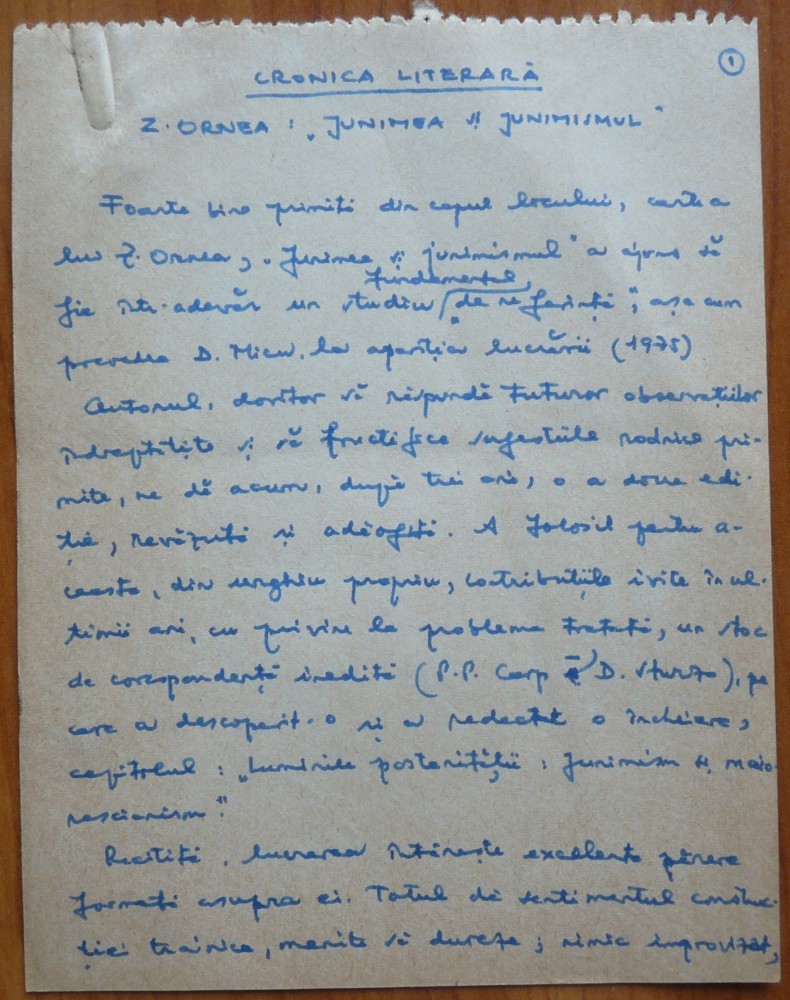 1
CRONICA LITERARĂ
Z. ORNEA : „JUNIMEA și JUNIMISMUL"
Foarte bine primită din capul locului, cartea
lui Z. Ornea, „Junimea și junimismul" a ajuns să
fundamental,
fie într-adevăr un studiu „de referință", așa cum
prevedea D. Micu, la apariția lucrării (1975)
Autorul, doritor să răspundă tuturor observațiilor
îndreptățite și să fructifice sugestiile rodnice pri-
mite, ne dă acum, după trei ani, o a doua edi-
ție, revăzută și adăogită. A folosit pentru a-
ceasta, din unghiu propriu, contribuțiile ivite în ul-
timii ani, cu privire la problema tratată, un stoc
de corespondență inedită (P.P. Carp – D. Sturza), pe
care a descoperit-o și a redactat o încheiere,
capitolul : „Luminile posterității : Junimism și maio-
rescianism".
Recitită, lucrarea întărește excelenta părere
formată asupra ei. Totul dă sentimentul construc-
ției trainice, menite să dureze ; nimic improvizat,